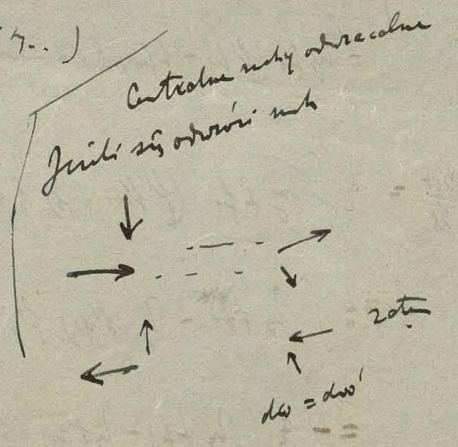 Centralne ruchy odwracalne
Jeżeli się odwróci ruch
zatem
dω = dω'